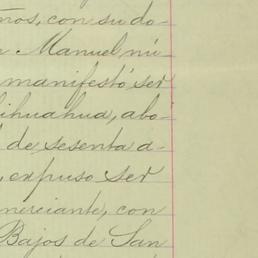 ños, con su do-
n Manuel nú-
manifestó ser
hihuahua, abo-
de sesenta a-
, expuso ser
merciante, con
Bajos de San